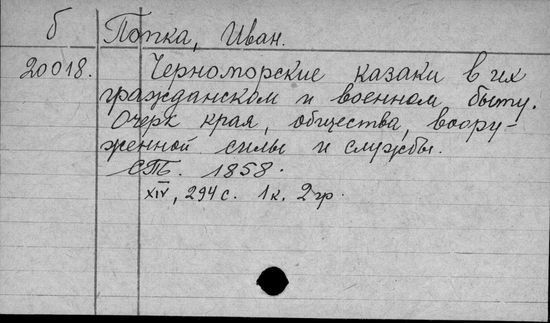 б Попка, Иван.
20018. Черноморские казаки в их
гражданском и военном быту.
Очерк края, общества, воору-
женной силы и службы.
СПБ. 1858.
XIV, 294 с. 1 к. 2 гр.